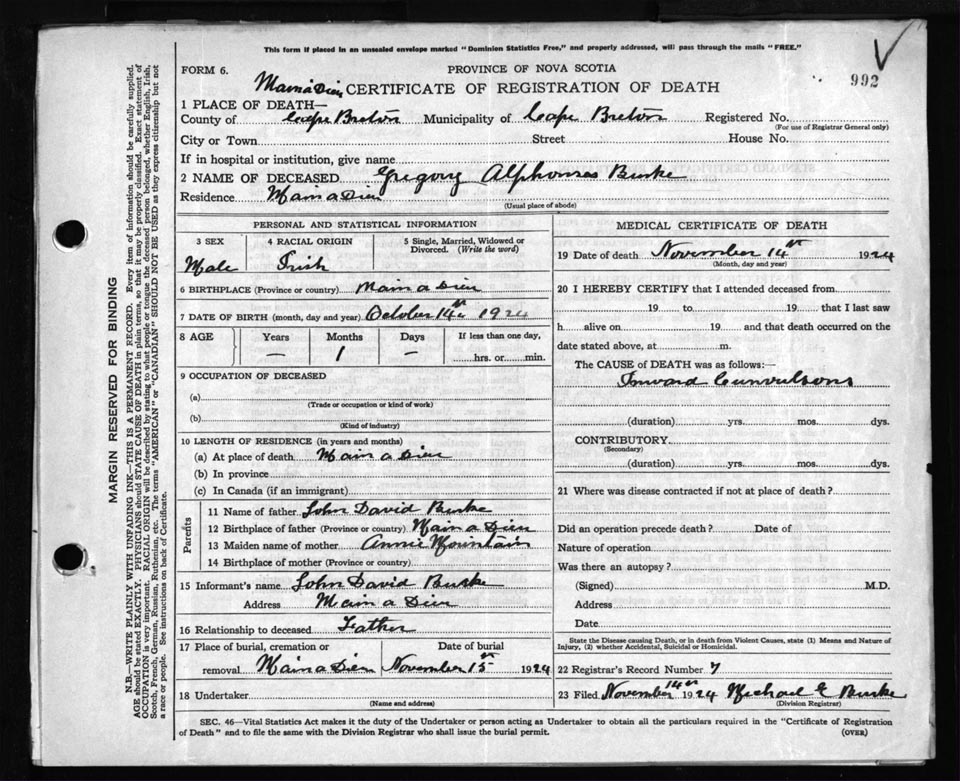 This form if placed in an unsealed envelope marked "Dominion Statistics Free," and properly addressed, will pass through the mails "FREE."
FORM 6.
PROVINCE OF NOVA SCOTIA
992
Main a Dieu CERTIFICATE OF REGISTRATION OF DEATH
1 PLACE OF DEATH—
County of Cape Breton Municipality of Cape Breton Registered No.
(For use of Registrar General only)
City or Town Street House No.
If in hospital or institution, give name
2 NAME OF DECEASED Gregory Alphonsus Burke
Residence Main a Dieu
(Usual place of abode)
PERSONAL AND STATISTICAL INFORMATION
3 SEX 4 RACIAL ORIGIN 5 Single, Married, Widowed or Divorced. (Write the word)
Male Irish
6 BIRTHPLACE (Province or country) Main a Dieu
7 DATE OF BIRTH (month, day and year) October 14th 1924
8 AGE Years Months Days If less than one day,
— 1 — hrs. or min.
9 OCCUPATION OF DECEASED
(a)
(Trade or occupation or kind of work)
(b)
(Kind of industry)
10 LENGTH OF RESIDENCE (in years and months)
(a) At place of death Main a Dieu
(b) In province
(c) In Canada (if an immigrant)
Parents
11 Name of father John David Burke
12 Birthplace of father (Province or country) Main a Dieu
13 Maiden name of mother Annie Mountain
14 Birthplace of mother (Province or country)
15 Informant's name John David Burke
Address Main a Dieu
16 Relationship to deceased Father
17 Place of burial, cremation or Date of burial
removal Main a Dieu November 15th 1924
18 Undertaker
(Name and address)
MEDICAL CERTIFICATE OF DEATH
19 Date of death November 14th 1924
(Month, day and year)
20 I HEREBY CERTIFY that I attended deceased from
19 to 19 that I last saw
h alive on 19 and that death occurred on the
date stated above, at m.
The CAUSE of DEATH was as follows:—
Inward Cunvulsons
(duration) yrs. mos. dys.
CONTRIBUTORY
(Secondary)
(duration) yrs. mos. dys.
21 Where was disease contracted if not at place of death?
Did an operation precede death? Date of
Nature of operation
Was there an autopsy?
(Signed) M.D.
Address
Date
State the Disease causing Death, or in death from Violent Causes, state (1) Means and Nature of
Injury, (2) whether Accidental, Suicidal or Homicidal.
22 Registrar's Record Number 7
23 Filed November 14th 1924 Michael E Burke
(Division Registrar)
SEC. 46—Vital Statistics Act makes it the duty of the Undertaker or person acting as Undertaker to obtain all the particulars required in the "Certificate of Registration
of Death" and to file the same with the Division Registrar who shall issue the burial permit.
(OVER)
MARGIN RESERVED FOR BINDING
N.B.—WRITE PLAINLY WITH UNFADING INK—THIS IS A PERMANENT RECORD. Every item of information should be carefully supplied.
AGE should be stated EXACTLY. PHYSICIANS should STATE CAUSE OF DEATH in plain terms, so that it may be properly classified. Exact statement of
OCCUPATION is very important. RACIAL ORIGIN will be described by stating to what people or tongue the deceased person belonged, whether English, Irish,
Scotch, French, German, Russian, Ruthenian, etc. The terms "AMERICAN" or "CANADIAN" SHOULD NOT BE USED as they express citizenship but not
a race or people. See instructions on back of Certificate.